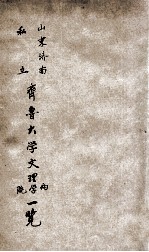 山東濟南
私立
齊魯大學文理學院一覽